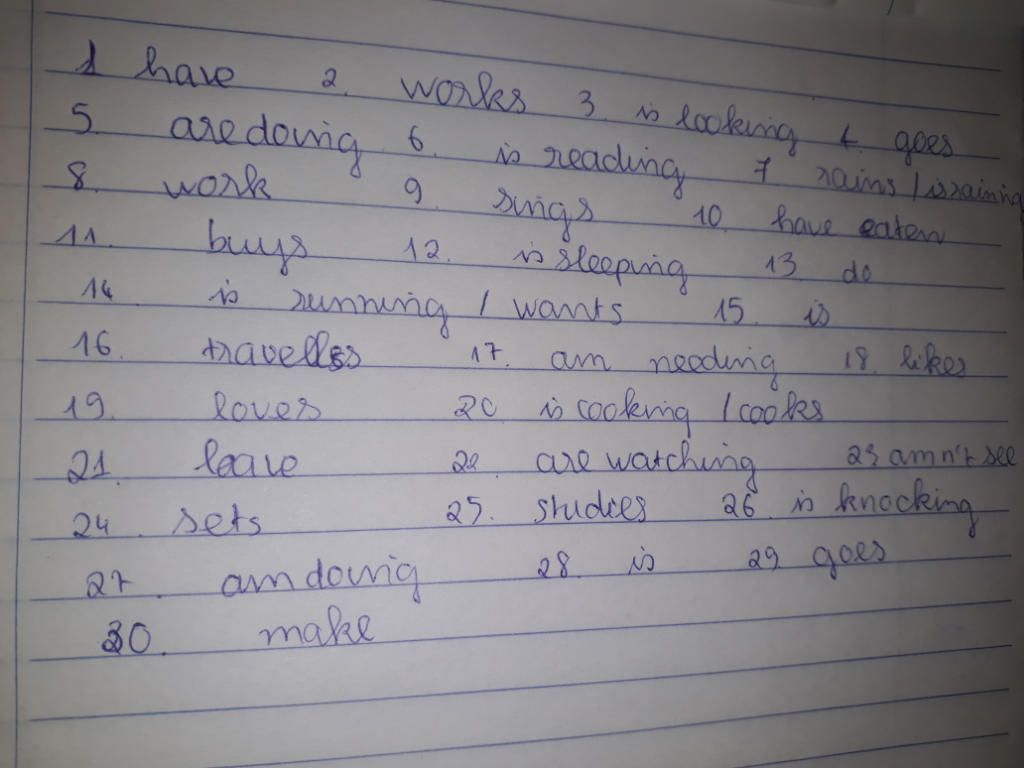 1 have 2. works 3 is looking 4. goes
5. are doing 6. is reading 7 rains / is raining
8. work 9. sings 10. have eaten
11. buys 12. is sleeping 13. do
14 is running / wants 15. is
16. travells 17. am needing 18. likes
19. loves 20 is cooking / cooks
21. leave 22. are watching 23 amn't see
24. sets 25. studies 26 is knocking
27. am doing 28. is 29 goes
30. make